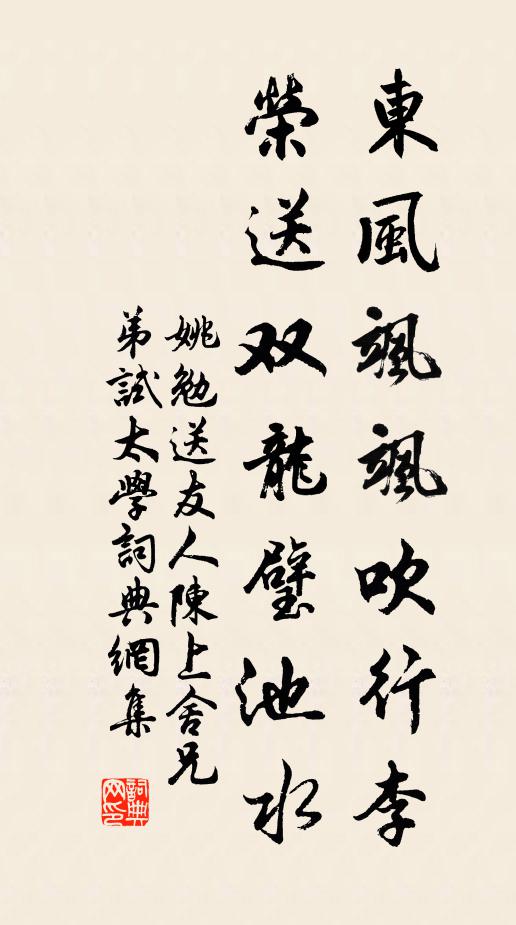 東風颯颯吹行李
榮送双龍璧池水
姚勉送友人陳上舍兄
弟試太學詞典網集
詞典网印